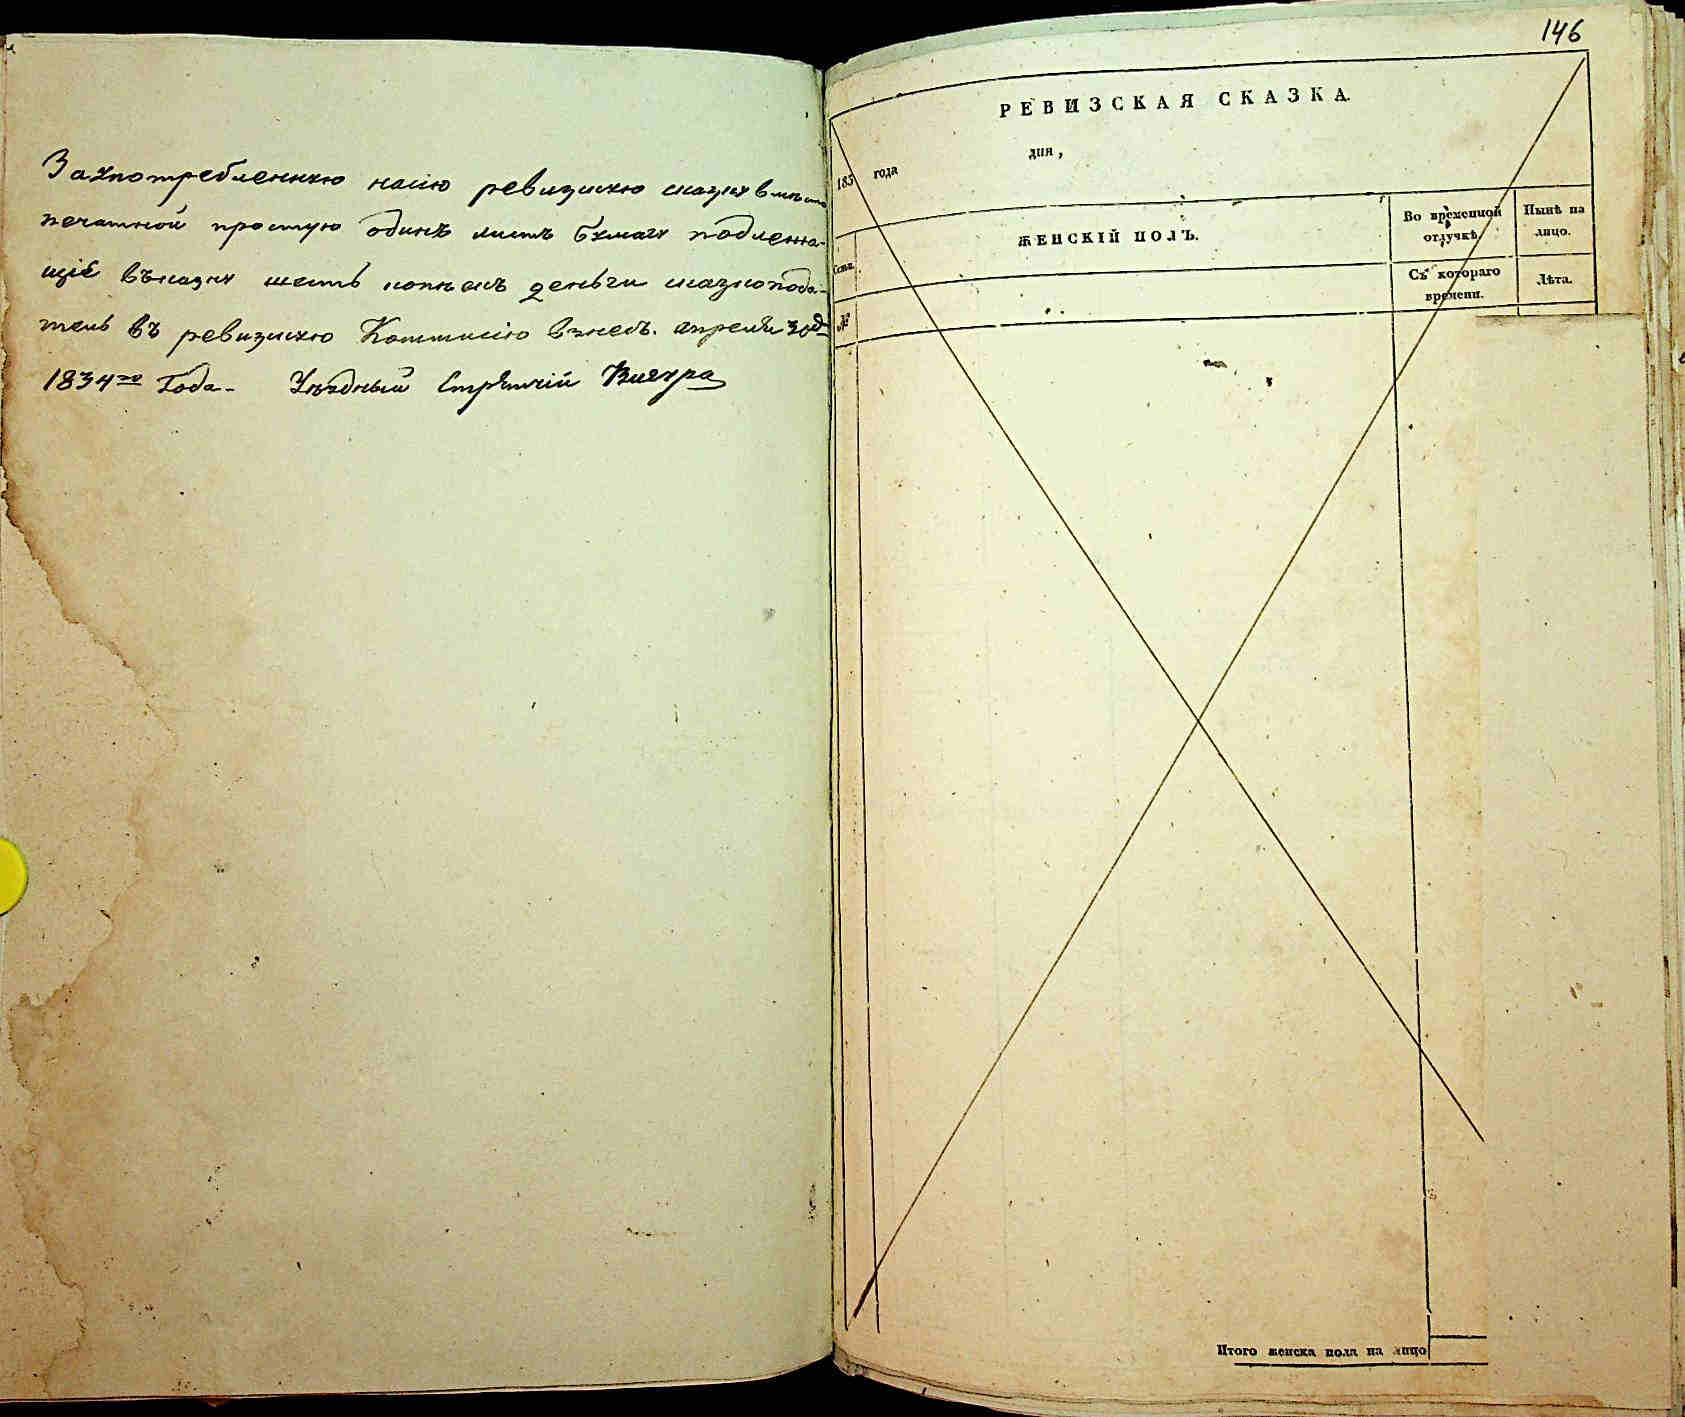 За употребленную на сію ревизскую сказку вместо
печатной простую одинъ листъ бумагу подлежа-
щіе въ казну шесть копѣекъ деньги сказкопода-
тель въ ревизскую Коммисію взнесъ. апреля 30д
1834го Года. Уѣздный Стряпчій
146
РЕВИЗСКАЯ СКАЗКА.
183 года дня,
ЖЕНСКІЙ ПОЛЪ.
Во временной отлучкѣ.
Нынѣ на лицо.
Семьи.
Съ котораго времени.
Лѣта.
№
Итого женска пола на лицо